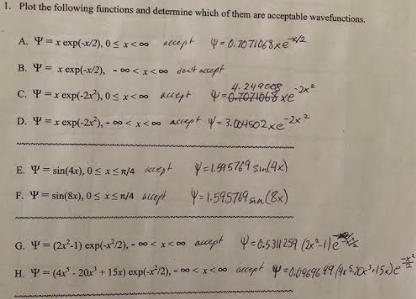 1. Plot the following functions and determine which of them are acceptable wavefunctions.
A. Ψ = x exp(-x/2), 0 ≤ x < ∞ accept ψ = 0.7071068xe^-x/2
B. Ψ = x exp(-x/2), - ∞ < x < ∞ don't accept
C. Ψ = x exp(-2x²), 0 ≤ x < ∞ accept ψ = 0.7071068 4.249008 xe^-2x²
D. Ψ = x exp(-2x²), - ∞ < x < ∞ accept ψ = 3.004502xe^-2x²
E. Ψ = sin(4x), 0 ≤ x ≤ π/4 accept ψ = 1.595769 sin(4x)
F. Ψ = sin(8x), 0 ≤ x ≤ π/4 accept ψ = 1.595769 sin(8x)
G. Ψ = (2x²-1) exp(-x²/2), - ∞ < x < ∞ accept ψ = 0.5311259 (2x²-1)e
H. Ψ = (4x⁵ - 20x³ + 15x) exp(-x²/2), - ∞ < x < ∞ accept ψ = 0.0969699 (4x⁵-20x³+15x)e^-x²/2